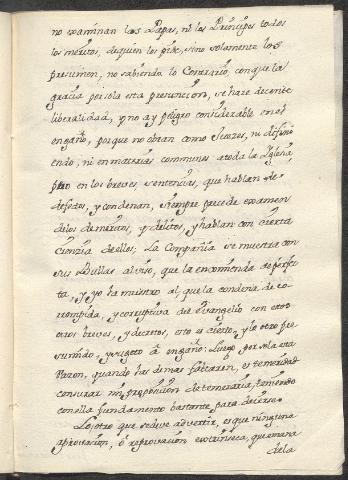 no examinan los Papas, ni los Principes todos
los meritos, de quien les pide, sino solamente los
presumen, no sabiendo lo Contrario, con que la
gracia por sola esta presuncion, se haze decente
liberalidad, y no ay peligro considerable en el
engaño, porque no obran como Juezes, ni difini
endo, ni en materias communes a toda la Iglesia,
pero en los breves, sentencias, que hablan de
defectos, y condenan, siempre precede examen
de los demeritos, y delitos, y hablan con cierta
Ciencia de ellos; La Compañia se muestra con
sus Bullas al viso, que la encomienda de perfec
ta, y yo ha muestro al, que la condena de co-
rrompida, y corruptiva del Evangelio con otros
breves, y decretos, esto es cierto, y lo otro pre
sumido, y sugeto a engaño: Luego por sola esta
Razon, quando las demas faltaren, es temeridad
censurar mi proposicion de temeraria, teniendo
con ella fundamento bastante para decirse
Lo otro que se deve advertir, es que ninguna
aprovacion, ò reprovacion extrinseca, que mana
de la